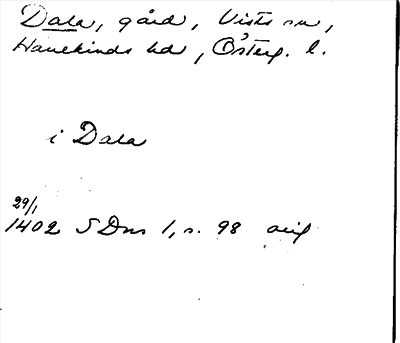 Dala, gård, Vists sn,
Hanekinds hd, Österg. l.
i Dala
29/1
1402 SDns 1, s. 98 orig